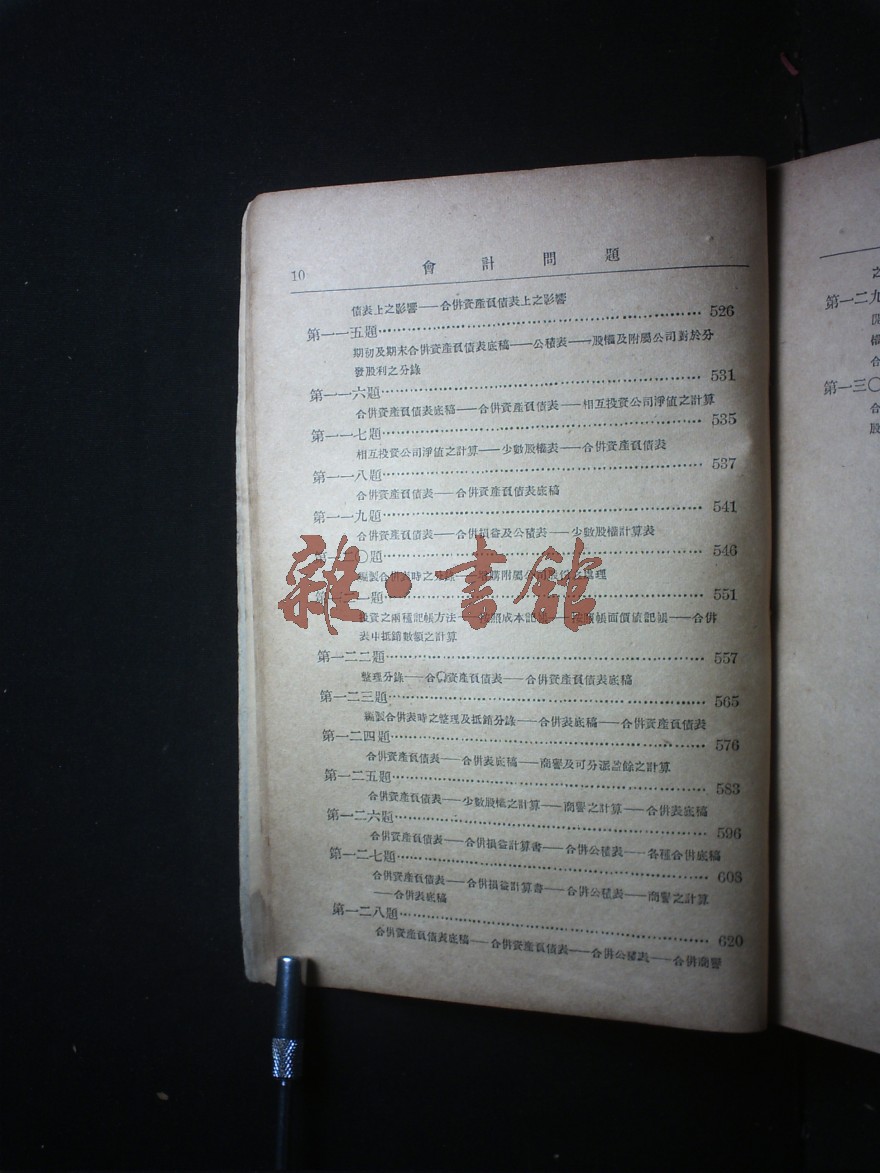 10 會計問題
債表上之影響——合併資產負債表上之影響
第一一五題 526
期初及期末合併資產負債表底稿——公積表——股權及附屬公司對於分
發股利之分錄
第一一六題 531
合併資產負債表底稿——合併資產負債表——相互投資公司淨值之計算
第一一七題 535
相互投資公司淨值之計算——少數股權表——合併資產負債表
第一一八題 537
合併資產負債表——合併資產負債表底稿
第一一九題 541
合併資產負債表——合併損益及公積表——少數股權計算表
第一二〇題 546
編製合併表時之分錄——購附屬公司處理
第一二一題 551
投資之兩種記帳方法——成本記——帳面價值記帳——合併
表中抵銷數額之計算
第一二二題 557
整理分錄——合資產負債表——合併資產負債表底稿
第一二三題 565
編製合併表時之整理及抵銷分錄——合併表底稿——合併資產負債表
第一二四題 576
合併資產負債表——合併表底稿——商譽及可分派盈餘之計算
第一二五題 583
合併資產負債表——少數股權之計算——商譽之計算——合併表底稿
第一二六題 596
合併資產負債表——合併損益計算書——合併公積表——各種合併底稿
第一二七題 603
合併資產負債表——合併損益計算書——合併公積表——商譽之計算
——合併表底稿
第一二八題 620
合併資產負債表底稿——合併資產負債表——合併公積表——合併商譽
雜·書館
之
第一二九
權
合
第一三〇
合
股